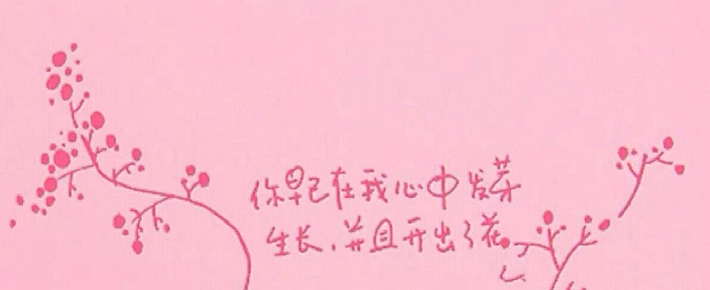 你早已在我心中发芽
生长,并且开出了花